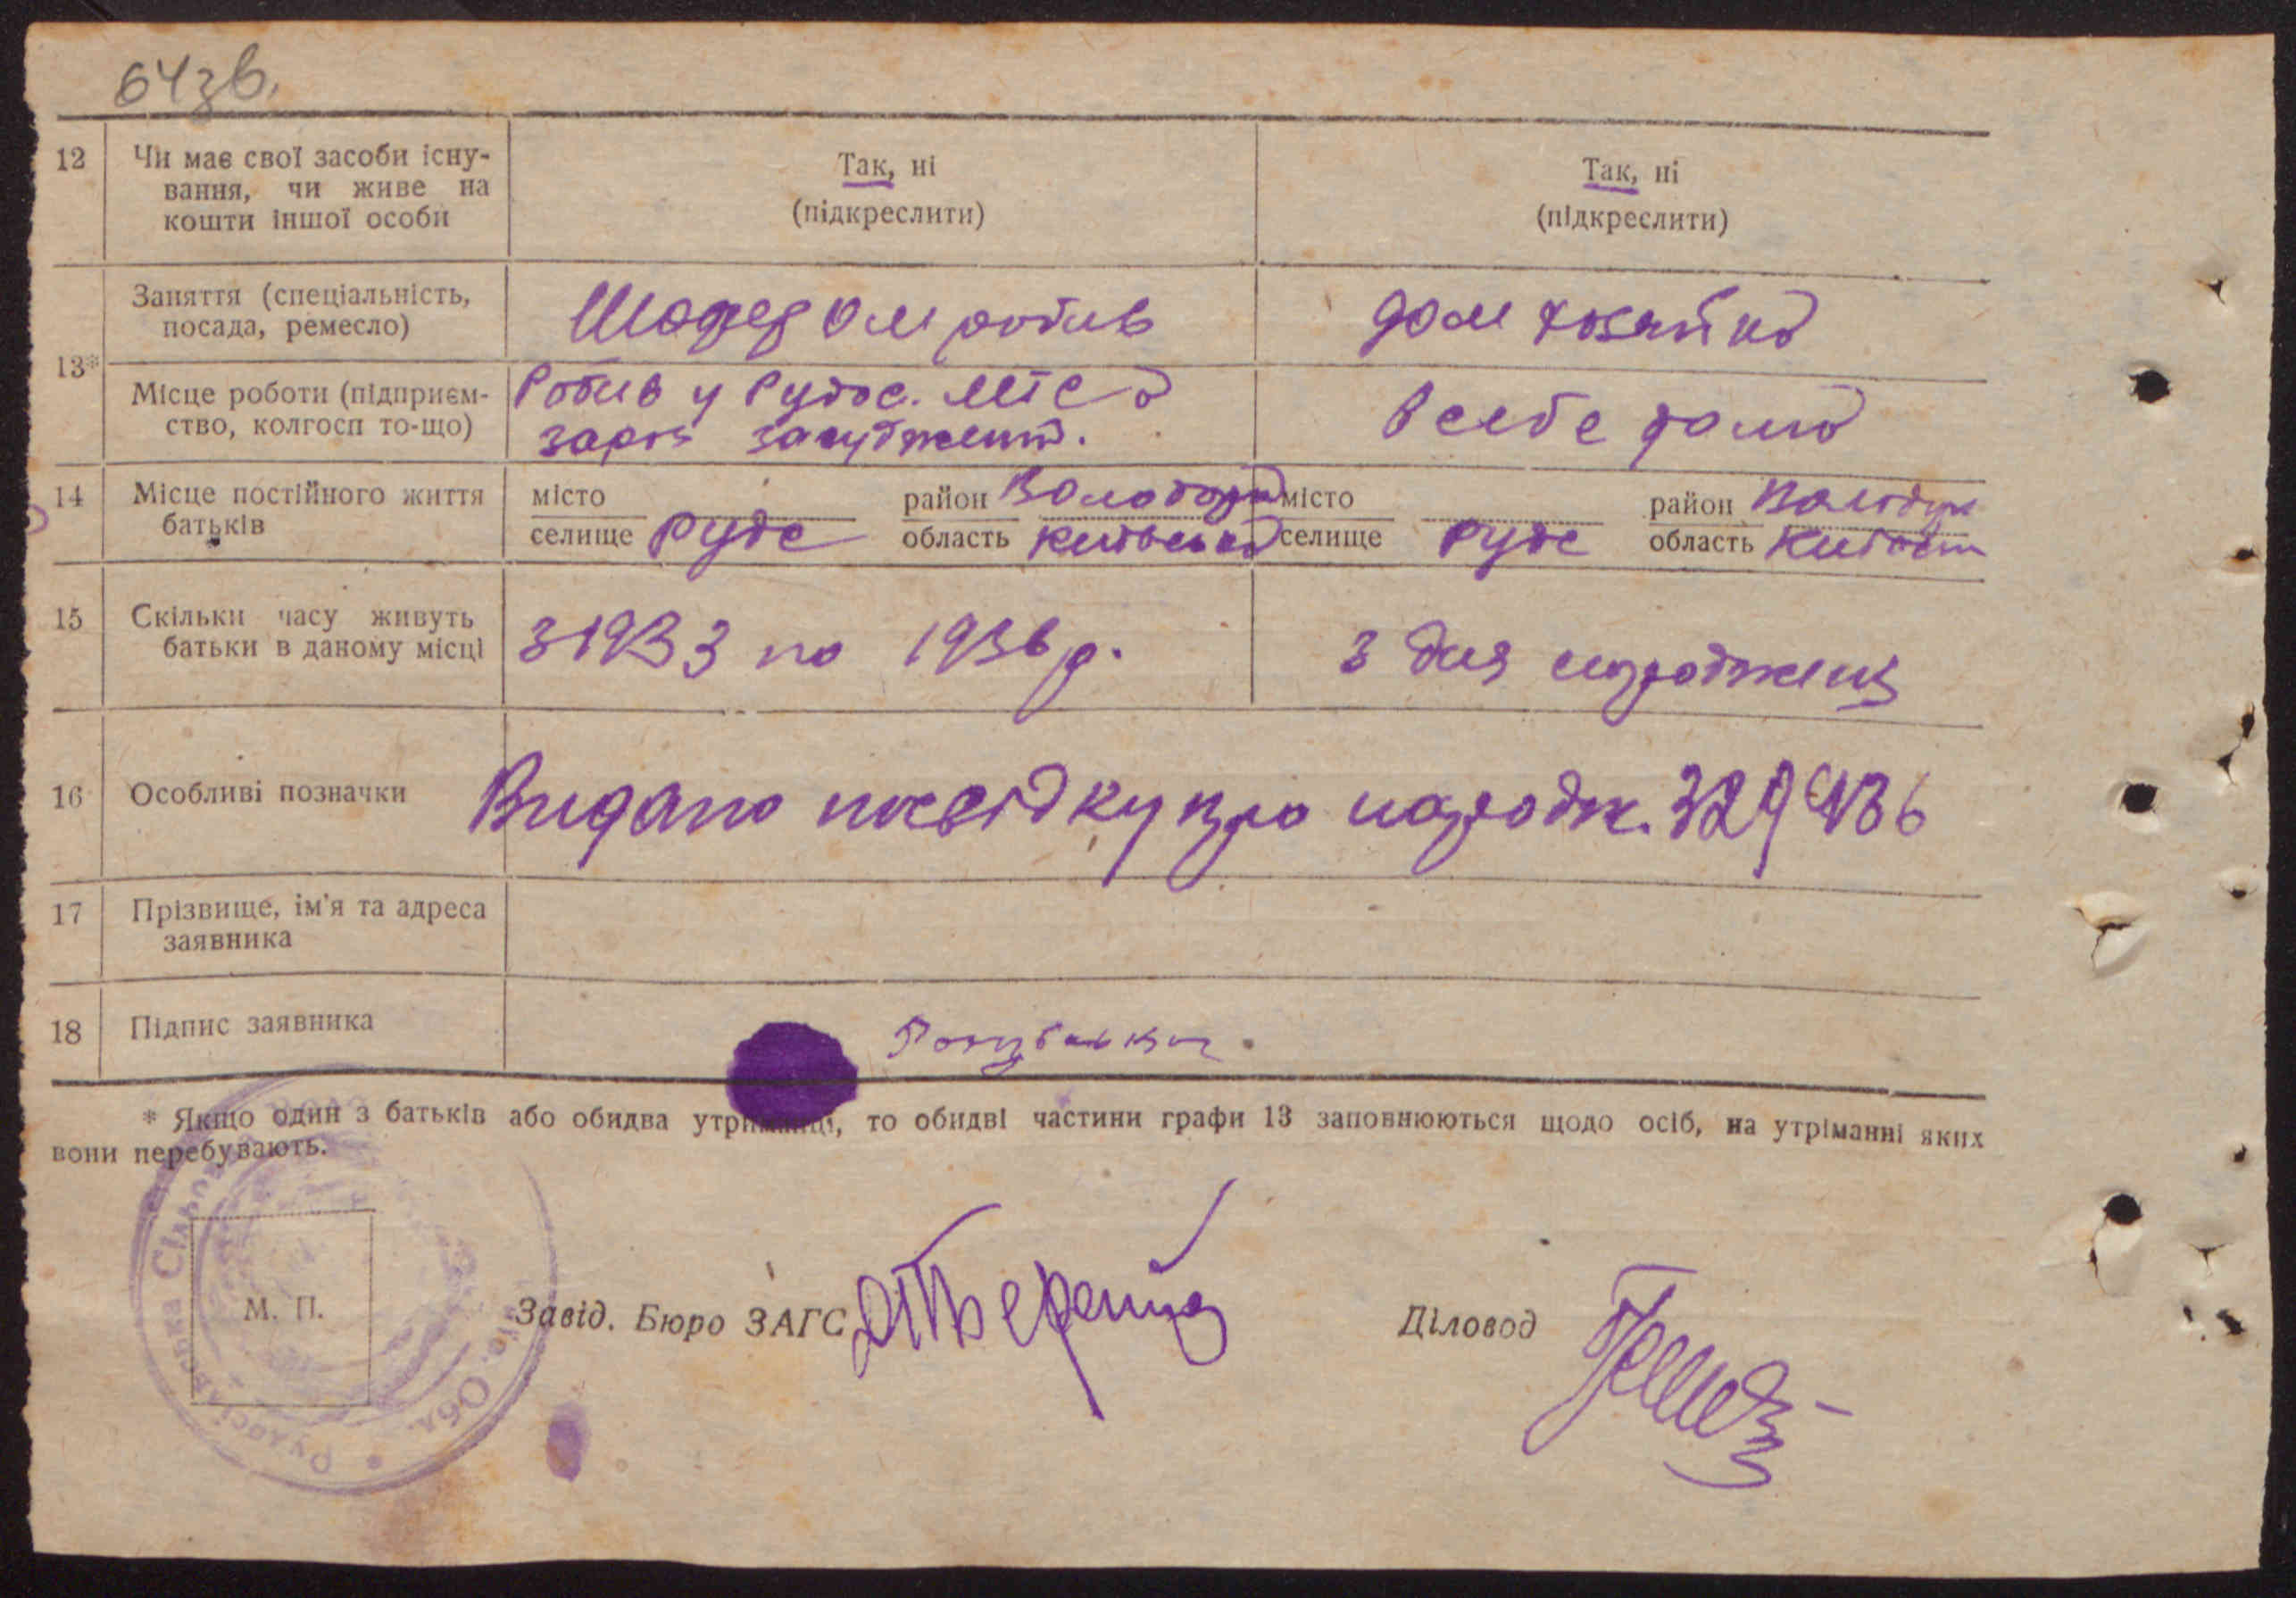 64зв.
12 Чи має свої засоби існу-
вання, чи живе на
кошти іншої особи
Так, ні
(підкреслити)
Так, ні
(підкреслити)
13*
Заняття (спеціальність,
посада, ремесло)
Шофером робив
дом хозяйка
Місце роботи (підприєм-
ство, колгосп то-що)
Робив у Рудос. МТС а
зараз засуджений.
в себе дома
14 Місце постійного життя
батьків
місто
селище Руде
район Володар
область Київська
місто
селище Руде
район Володар
область Київськ
15 Скільки часу живуть
батьки в даному місці
З 1933 по 1936 р.
З дня народження
16 Особливі позначки
Видано посвідку про народж.
17 Прізвище, ім'я та адреса
заявника
18 Підпис заявника
* Якщо один з батьків або обидва утриманці, то обидві частини графи 13 заповнюються щодо осіб, на утріманні яких
вони перебувають.
М. П.
Завід. Бюро ЗАГС
Діловод